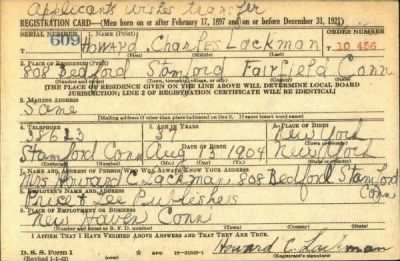 Applicant wishes transfer
REGISTRATION CARD—(Men born on or after February 17, 1897 and on or before December 31, 1921)
SERIAL NUMBER 1. NAME (Print) ORDER NUMBER
609 Howard Charles Lackman T 10 456
2. PLACE OF RESIDENCE (Print)
808 Bedford Stamford Fairfield Conn
[THE PLACE OF RESIDENCE GIVEN ON THE LINE ABOVE WILL DETERMINE LOCAL BOARD
JURISDICTION; LINE 2 OF REGISTRATION CERTIFICATE WILL BE IDENTICAL]
3. MAILING ADDRESS
Same
[Mailing address if other than place indicated on line 2. If same insert word same]
4. TELEPHONE 5. AGE IN YEARS 6. PLACE OF BIRTH
37 New York
DATE OF BIRTH
Stamford Conn Aug 13 1904 New York
7. NAME AND ADDRESS OF PERSON WHO WILL ALWAYS KNOW YOUR ADDRESS
Mrs C. Lackman, 808 Bedford Stamford
Conn
8. EMPLOYER'S NAME AND ADDRESS
Price & Lee Publishers
9. PLACE OF EMPLOYMENT OR BUSINESS
New Haven Conn
I AFFIRM THAT I HAVE VERIFIED ABOVE ANSWERS AND THAT THEY ARE TRUE.
D. S. S. Form 1
(Revised 1-1-42) GPO 16—21630-1 Howard C. Lackman